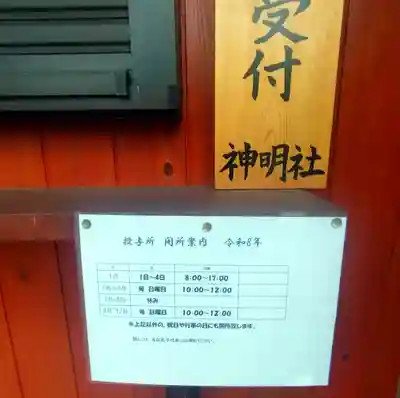 受付
神明社
授与所 開所案内 令和8年
1月 1日~4日 8:00~17:00
毎 日曜日 10:00~12:00
休み
毎 日曜日 10:00~12:00
※上記以外の、祝日や行事の日にも開所致します。